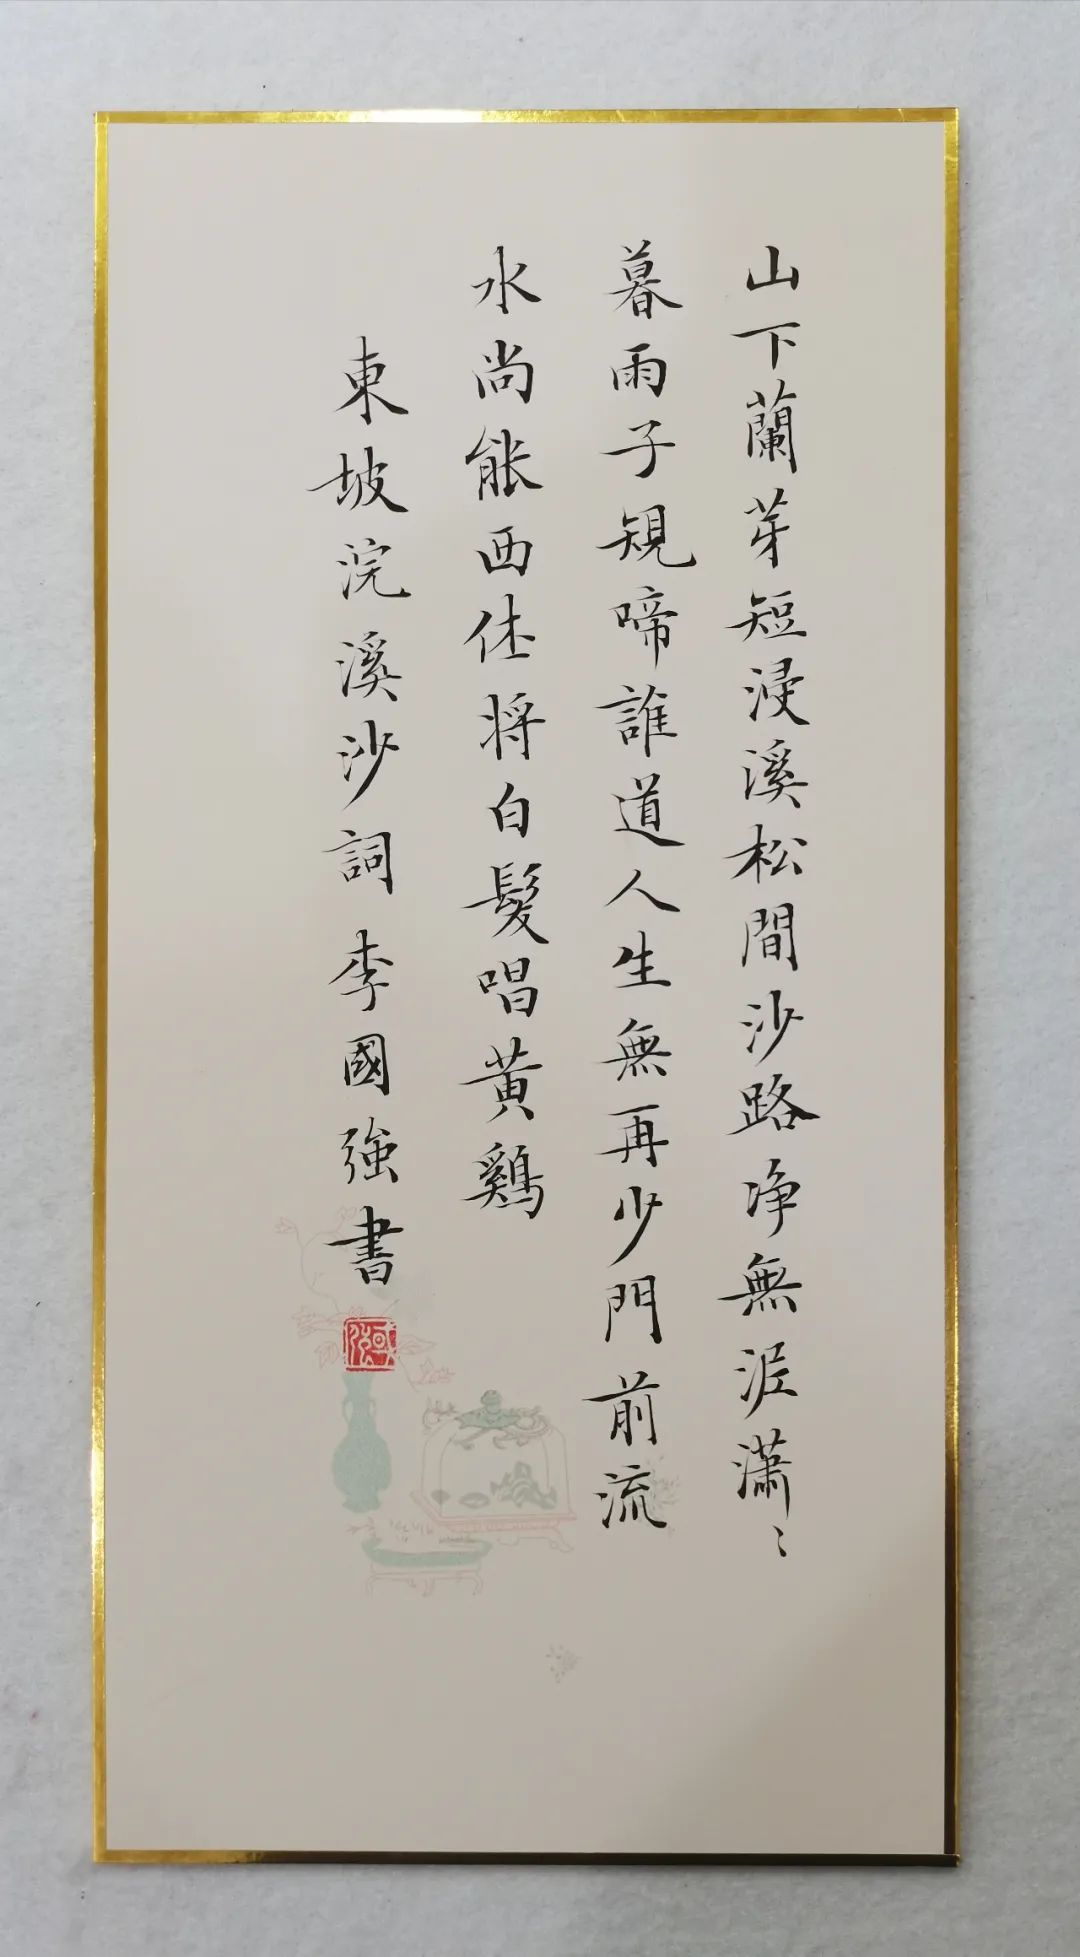 山下蘭芽短浸溪松間沙路净無泥瀟〻
暮雨子規啼誰道人生無再少門前流
水尚能西休將白髮唱黄鷄
東坡浣溪沙詞李國強書
國強